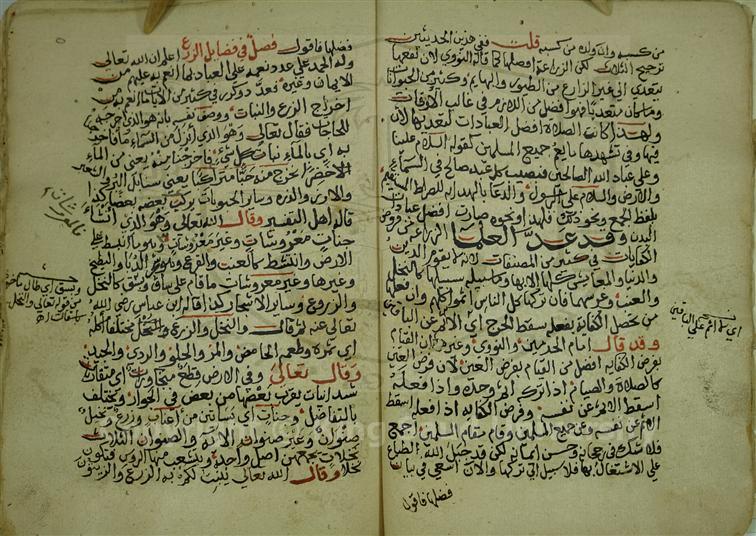 من كسبه وان ولده من كسبه قلت ففي هذين الحديثين
ترجيح الثلاث لكن الزراعة افضلها كما قاله النووي لان نفعها
يتعدى الى غير الزارع من الطيور والبهايم وكثير من الحيوانات
وما كان متعديا فهو افضل من اللازم في غالب الاوقات
ولهذا كانت الصلاة افضل العبادات لتعديها لان
فيها وفي تشهدها ما يعم جميع المسلمين كقوله السلام علينا
وعلى عباد الله الصالحين فتصيب كل عبد صالح في السماء
والارض والسلام على الرسول والدعا بالهداية للصراط المستقيم
بلفظ الجمع ونحو ذلك فلهذا ونحوه صارت افضل عبادات
البدن وقد عد العلما الزراعة من فروض
الكفايات في كثير من المصنفات لانه لا يقوم الدين
والدنيا والمعايش كلها الا بها وما سبيله سبيلها كالنخل
والعنب وغرسهما فان تركها كل الناس اثموا كلهم وان فعلها
من تحصل الكفاية بفعله سقط الحرج اي الاثم عن الباقين
وقد قال امام الحرمين والنووي وغيرهما ان القيام
بفرض الكفاية افضل من القيام بفرض العين لان فرض العين
كالصلاة والصيام اذا تركه اثم وحده واذا فعله
اسقط الاثم عن نفسه وفرض الكفاية اذا فعله اسقط
الاثم عن نفسه وعن جميع المسلمين وقام مقام المسلمين اجمع
فلا شك في رجحانه وحسن ايمانه لكن قد جبل الله الطباع
على الاشتغال بها فلا سبيل الى تركها والان اسعى في بيان
فضلها فاقول
اي اثم على الباقين
فضلها فاقول فصل في فضايل الزرع اعلم ان الله تعالى
وله الحمد على عدد نعمه على العباد بما انعم به عليهم من
الايمان وغيره فعدد وكرر في كثير من الايات ما انعم به من
اخراج الزرع والنبات ووصف نفسه بانه هو الذي اخرجه
للحاجات فقال تعالى وهو الذي انزل من السماء ماء فاخرجنا
به اي بالماء نبات كل شيء فاخرجنا منه يعني من الماء
الاخضر نخرج منه حبا متراكبا يعني سنابل البر والشعير
والارز والذرة وساير الحبوبات يركب بعضه بعضا كذا
قاله اهل التفسير وقال الله تعالى وهو الذي انشأ
جنات معروشات وغير معروشات وهو ما انبسط على
الارض وانتشط كالعنب والقرع والدبا والبطيخ
وغيرها وغير معروشات ما قام على ساق وبسق كالنخل
والزروع وساير الاشجار كذا قاله ابن عباس رضي الله
تعالى عنه ثم قال والنخل والزرع مختلفا اكله
اي ثمره وطعمه الحامض والمر والحلو والردي والجيد
وقال تعالى وفي الارض قطع متجاورات اي متقاربات
متدانيات يقرب بعضها من بعض في الجوار وتختلف
بالتفاضل وجنات اي بساتين من اعناب وزرع ونخيل
صنوان وغير صنوان الاية والصنوان النخلات
يجمعهن اصل واحد وتتشعب منها الرؤس فتكون
نخلا وقال الله تعالى ينبت لكم به الزرع والزيتون
وبسق اي طال ماخوذ
من قوله تعالى والنخل
باسقات اه